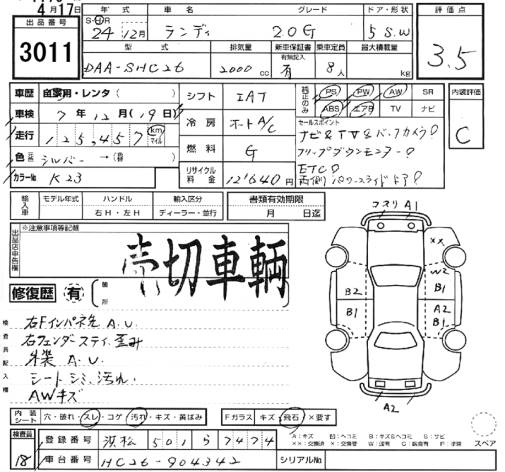 4月17日
出品番号 3011
年式 車名 グレード ドア・形状 評価点
S・H・R 24年 12月 ランディ 20G 5 S.W 3.5
型式 排気量 新車保証書 乗車定員 最大積載量
DAA-SHC26 2000cc 有無記入 有 8人 kg
車歴 自家用・レンタ( ) シフト IAT 純正のみ PS PW AW SR 内装評価
車検 7年12月(19日) ABS エアB TV ナビ C
走行 125,457 km マイル 冷房 オートA/C セールスポイント
ナビ&TV&バックカメラ
色 元色 シルバー→(色替) 燃料 G フリップダウンモニター
ETC
カラーNo K23 リサイクル料金 12,640円 両側パワースライドドア
輸入車 モデル年式 ハンドル 輸入区分 書類有効期限
右H・左H ディーラー・並行 月 日迄
出品店申告欄 ※注意事項等記載
売切車輌
修復歴 有 箇所
検査員記入欄
右Fインパネ先 A.U.
右フェンダーステイ歪み
外装 A.U.
シートシミ、汚れ
AWキズ
コスリ A1
XX
W2
B2 B1
B1 A2
B1
A2
内装シート 穴・破れ・スレ・コゲ・汚れ・キズ・黄ばみ Fガラス キズ・飛石・×要す
スペア
検査員 登録番号 浜松 501 ら 7474
18 車台番号 HC26-904342 シリアルNo